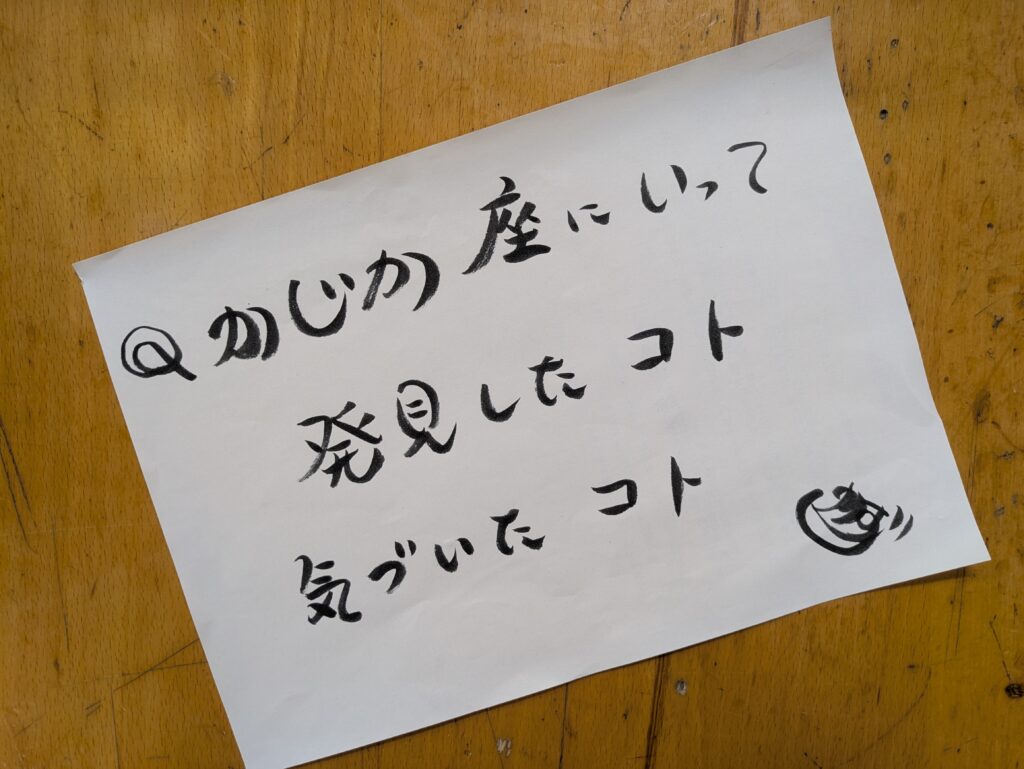 Q かじか座にいって
発見したコト
気づいたコト